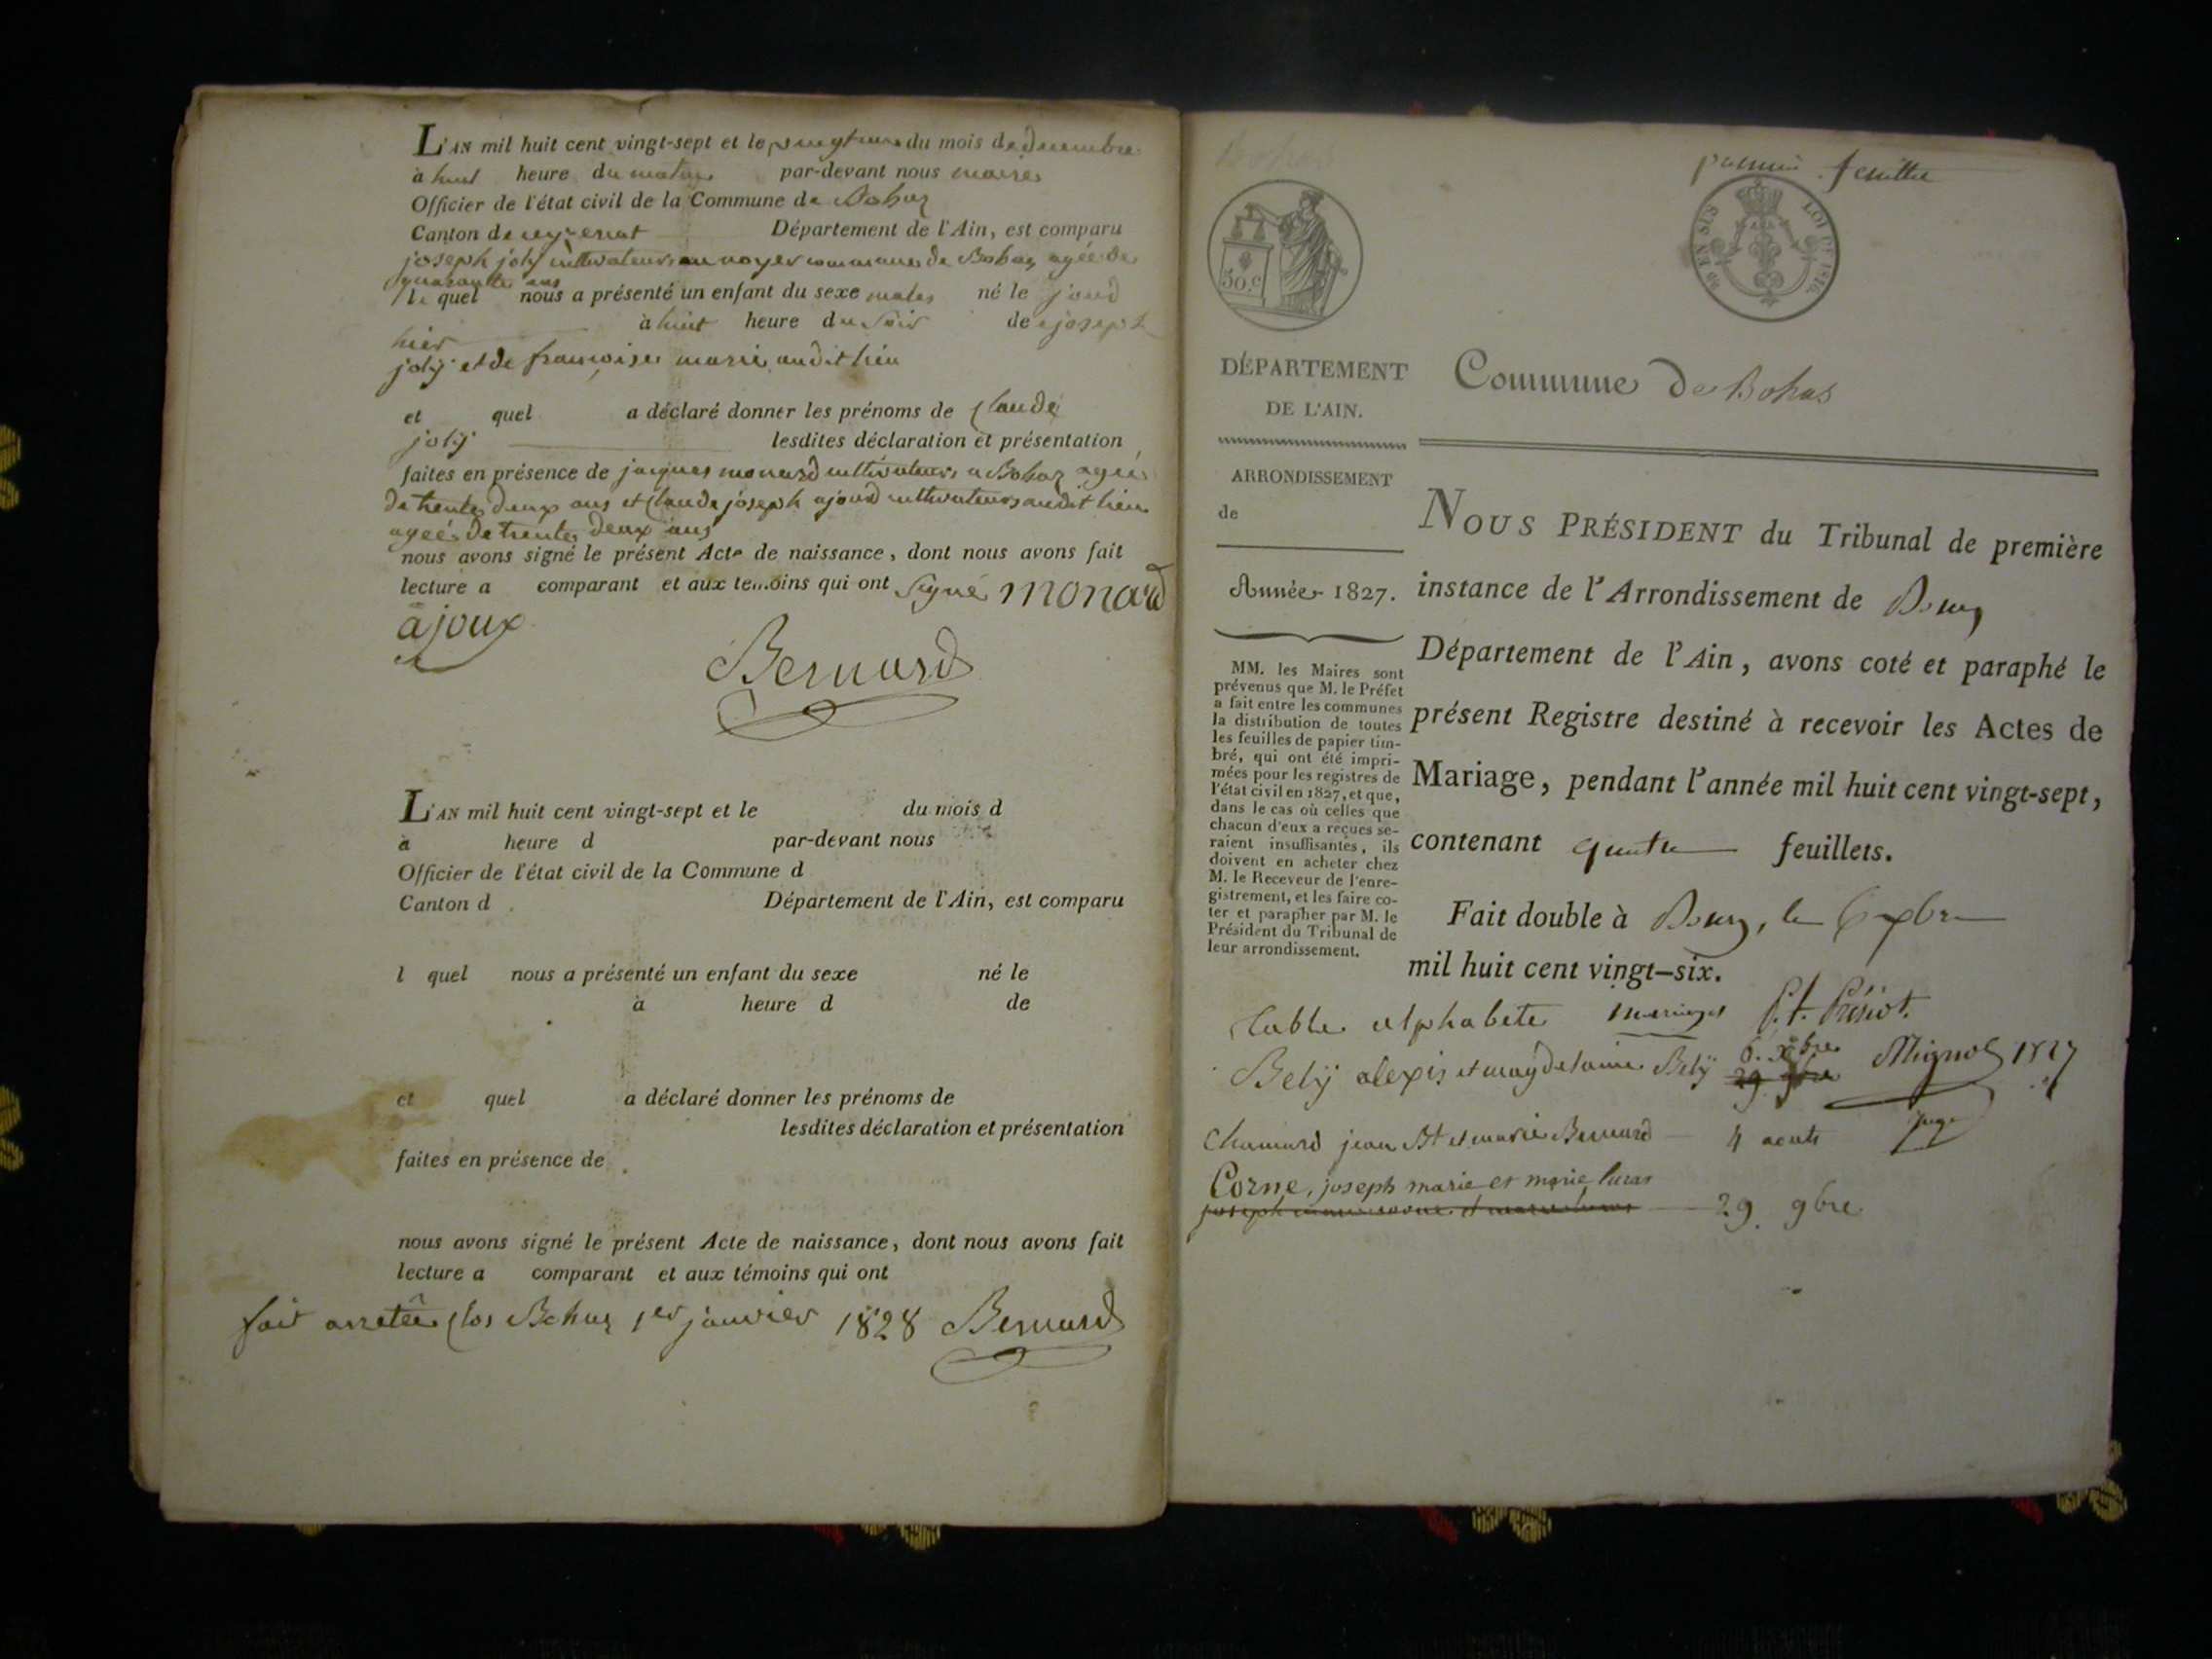 L'AN mil huit cent vingt-sept et le du mois de decembre
à huit heure du matin par-devant nous maire
Officier de l'état civil de la Commune de Bohaz
Canton de ceyzeriat Département de l'Ain, est comparu
joseph joly cultivateur au noyer commune de Bohaz agée de
quarante ans
le quel nous a présenté un enfant du sexe males né le jourd
hier à huit heure du soir de joseph
joly et de francoise marie audit lieu
et quel a déclaré donner les prénoms de Claude
joly lesdites déclaration et présentation
faites en présence de jacques monard cultivateur a Bohaz agée
de trente deux ans et Claude joseph ajoud cultivateur audit lieu
agée de trente deux ans
nous avons signé le présent Acte de naissance, dont nous avons fait
lecture a comparant et aux temoins qui ont signé monard
ajoux
Bernard
L'AN mil huit cent vingt-sept et le du mois d
à heure d par-devant nous
Officier de l'état civil de la Commune d
Canton d Département de l'Ain, est comparu
l quel nous a présenté un enfant du sexe né le
à heure d de
et quel a déclaré donner les prénoms de
lesdites déclaration et présentation
faites en présence de
nous avons signé le présent Acte de naissance, dont nous avons fait
lecture a comparant et aux témoins qui ont
fait arretée clos Bohaz 1er janvier 1828 Bernard
Bohas
premier feuillet
50.c
EN SUS LOI DE 1816.
DÉPARTEMENT
DE L'AIN.
Commune de Bohas
ARRONDISSEMENT
de
Année 1827.
MM. les Maires sont
prévenus que M. le Préfet
a fait entre les communes
la distribution de toutes
les feuilles de papier tim-
bré, qui ont été impri-
mées pour les registres de
l'état civil en 1827, et que,
dans le cas où celles que
chacun d'eux a reçues se-
raient insuffisantes, ils
doivent en acheter chez
M. le Receveur de l'enre-
gistrement, et les faire co-
ter et parapher par M. le
Président du Tribunal de
leur arrondissement.
NOUS PRÉSIDENT du Tribunal de première
instance de l'Arrondissement de Bourg
Département de l'Ain, avons coté et paraphé le
présent Registre destiné à recevoir les Actes de
Mariage, pendant l'année mil huit cent vingt-sept,
contenant quatre feuillets.
Fait double à Bourg, le 6 xbre
mil huit cent vingt-six.
table alphabete mariages
Belÿ alexis et magdelaine Belÿ 6. xbre 29 9bre Mignol 1827
Chanard jean Bt et marie Bernard 4 aout juge
Corne, joseph marie et marie luras
29. 9bre